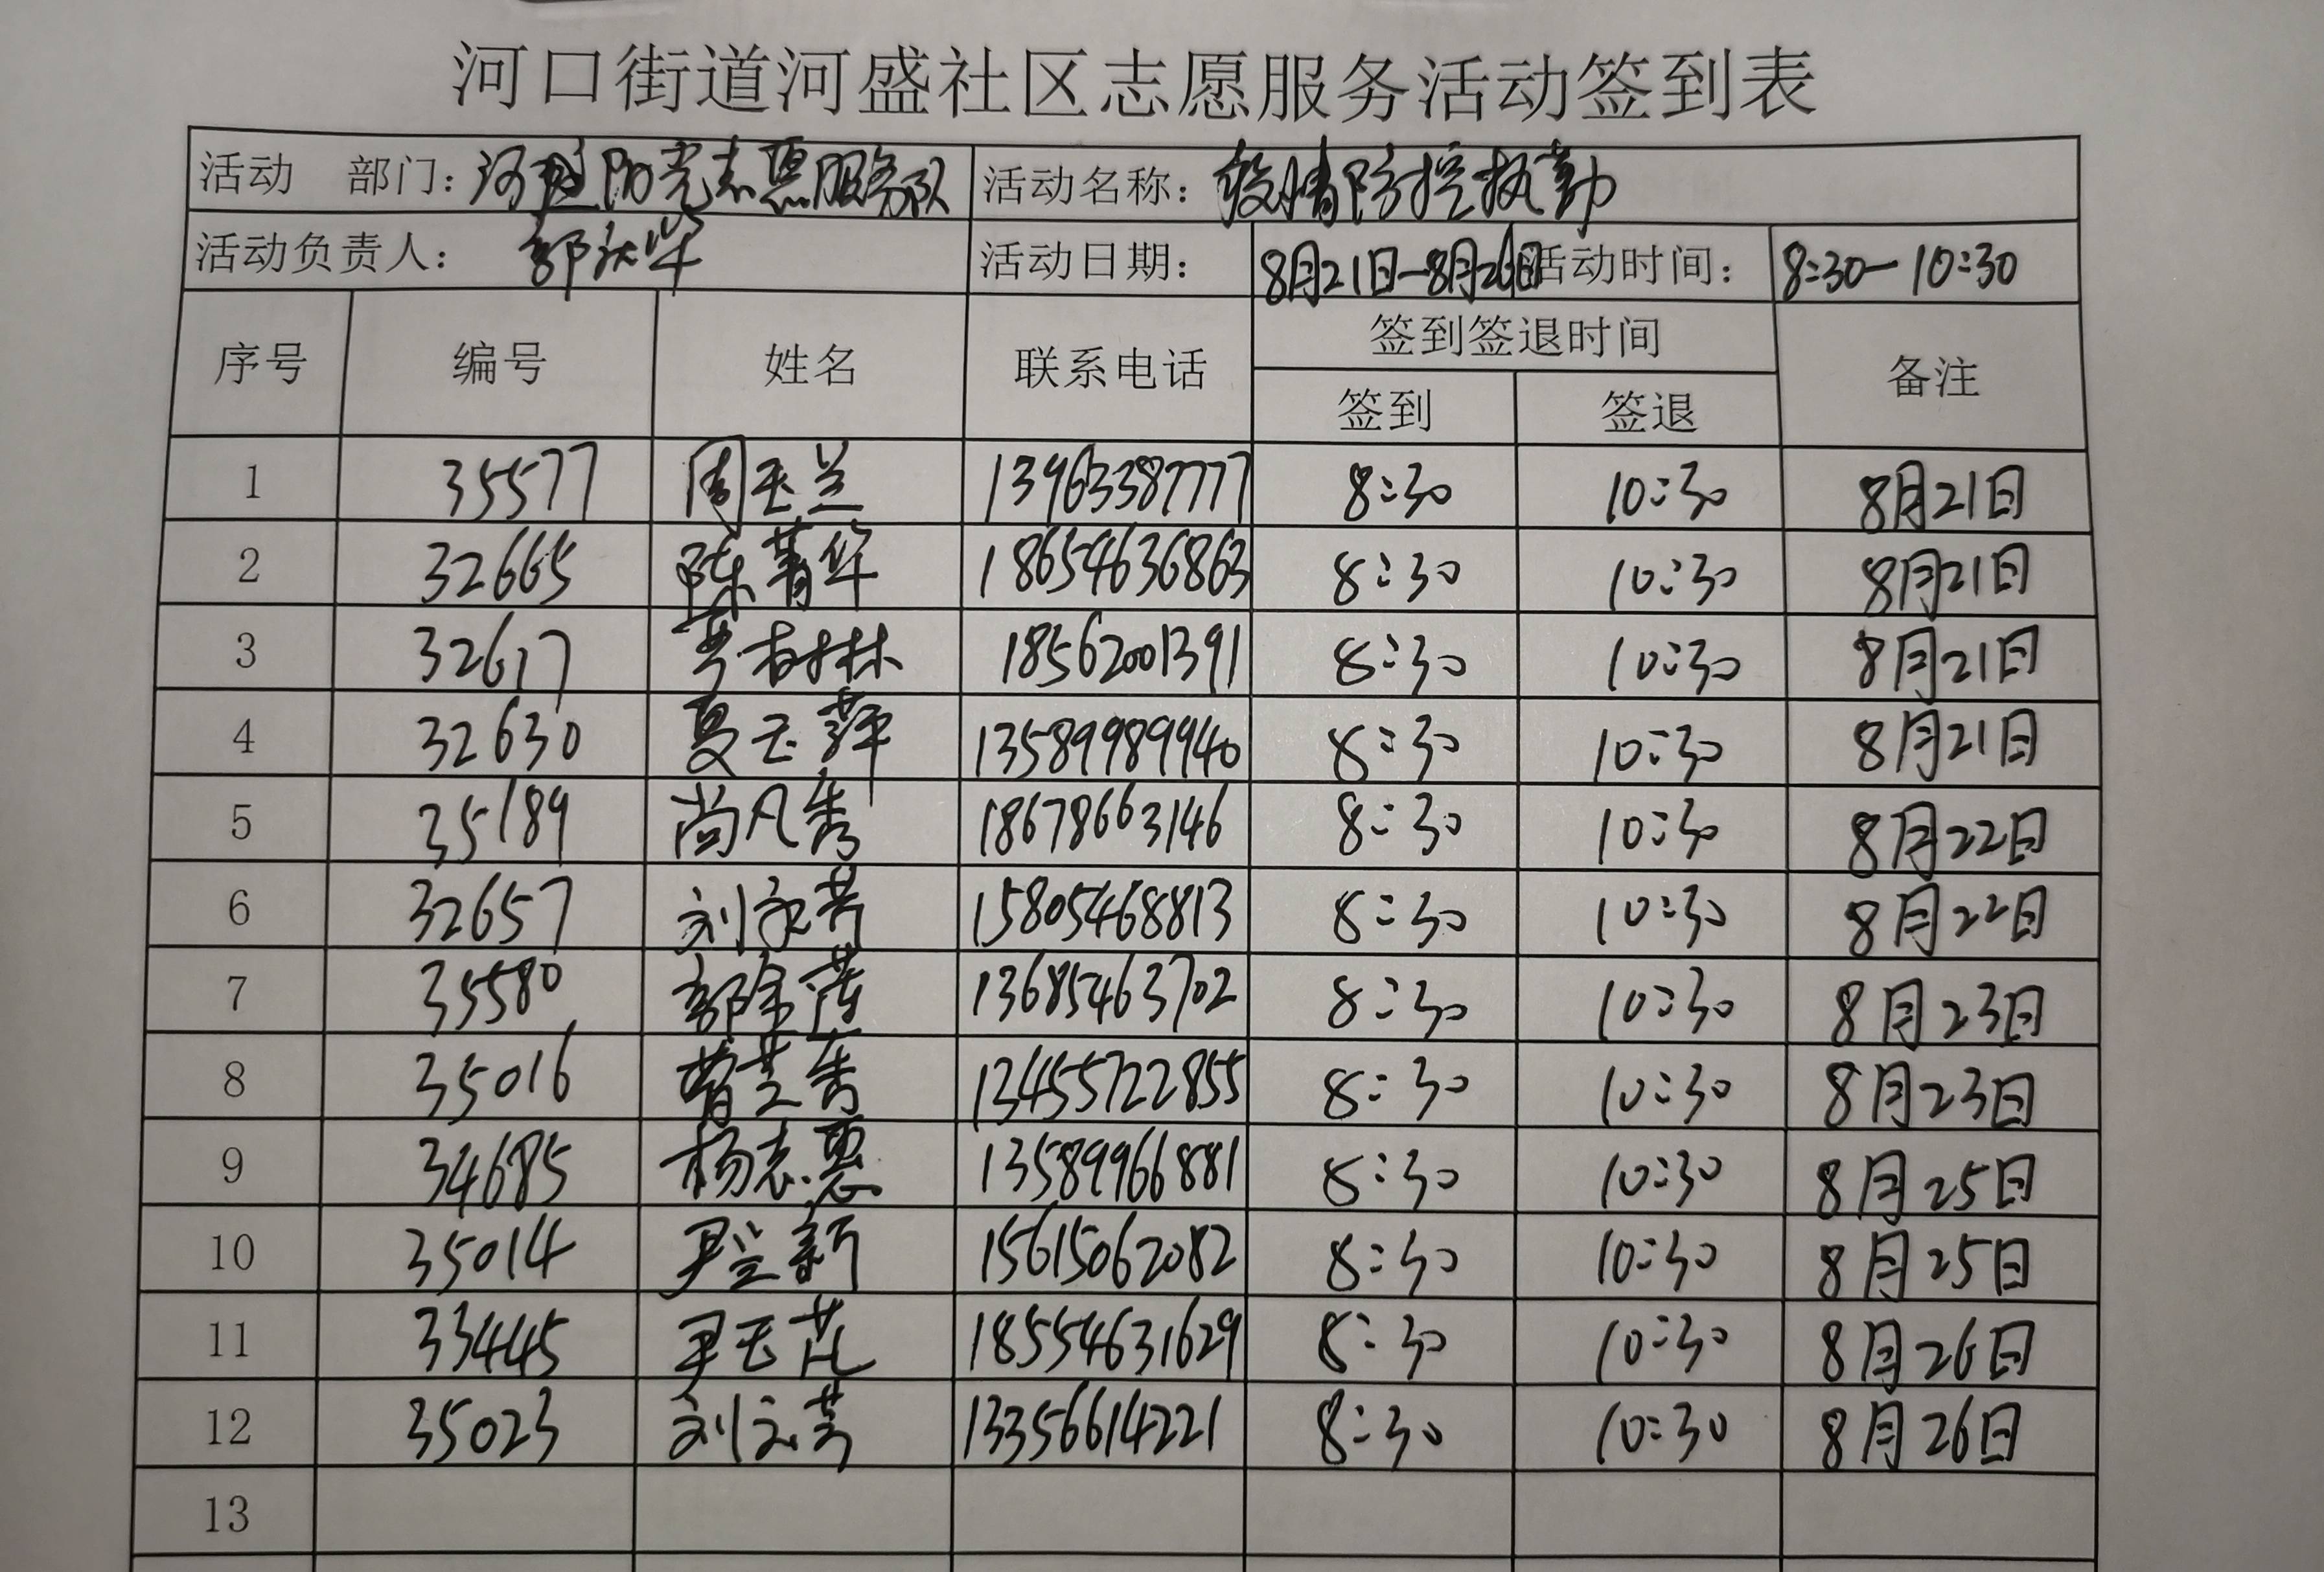 河口街道河盛社区志愿服务活动签到表
活动 部门： 河盛阳光志愿服务队 活动名称： 疫情防控执勤
活动负责人： 郭 华 活动日期： 8月21日-8月26日 活动时间： 8:30-10:30
序号 编号 姓名 联系电话 签到签退时间 备注
签到 签退
1 35577 周玉兰 13963387777 8:30 10:30 8月21日
2 32665 陈菁华 18654636863 8:30 10:30 8月21日
3 32617 林 18562001391 8:30 10:30 8月21日
4 32630 夏玉萍 13589989940 8:30 10:30 8月21日
5 35189 尚凡秀 18678663146 8:30 10:30 8月22日
6 32657 刘永芳 15805468813 8:30 10:30 8月22日
7 35580 郭金莲 13685463702 8:30 10:30 8月23日
8 35016 曹兰秀 13455722855 8:30 10:30 8月23日
9 34685 杨志惠 13589966881 8:30 10:30 8月25日
10 35014 尹兰新 15615062082 8:30 10:30 8月25日
11 33445 尹玉芹 18554631629 8:30 10:30 8月26日
12 35023 刘文芳 13356614221 8:30 10:30 8月26日
13